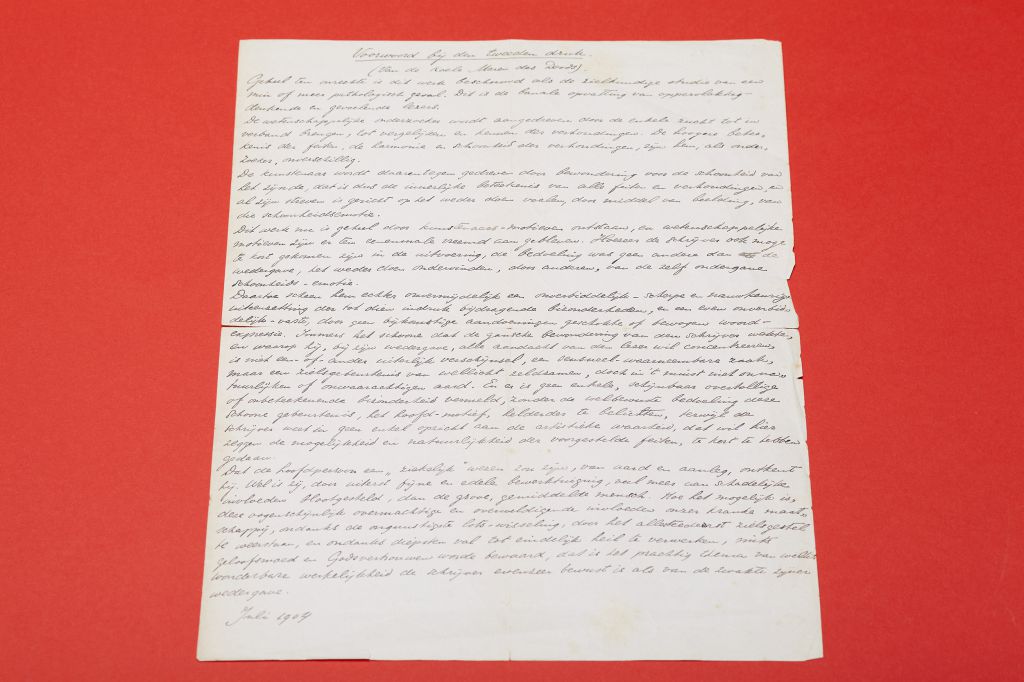 Voorwoord bij den tweeden druk.
(Van de koele Meren des Doods)
Geheel ten onrechte is dit werk beschouwd als de zielkundige studie van een
min of meer pathologisch geval. Dit is de banale opvatting van oppervlakkig-
denkende en gevoelende lezers.
De wetenschappelijke onderzoeker wordt aangedreven door de enkele zucht tot in
verband brengen, tot vergelijken en kennen der verhoudingen. De hoogere betee-
kenis der feiten, de harmonie en schoonheid der verhoudingen, zijn hem, als onder-
zoeker, onverschillig.
De kunstenaar wordt daarentegen gedreven door bewondering voor de schoonheid van
het zijnde, dat is dus de innerlijke beteekenis van alle feiten en verhoudingen, en
al zijn streven is gericht op het weder doen voelen, door middel van beelding, van
die schoonheidsemotie.
Dit werk nu is geheel door kunstenaars-motieven ontstaan, en wetenschappelijke
motieven zijn er ten eenenmale vreemd aan gebleven. Hoezeer de schrijver ook moge
te kort gekomen zijn in de uitvoering, de bedoeling was geen andere dan de
wedergave, het weder doen ondervinden, door anderen, van de zelf ondergane
schoonheids-emotie.
Daartoe scheen hem echter onvermijdelijk een onverbiddelijk-scherpe en nauwkeurige
uiteenzetting der tot dien indruk bijdragende bizonderheden, in een even onverbid-
delijk-vaste, door geen bijkomstige aandoeningen geschokte of bewogen woord-
expressie. Immers het schoone dat de gansche bewondering van den schrijver wekte,
en waarop hij, bij zijn wedergave, alle aandacht van den lezer wil concentreeren,
is niet een-of-ander uiterlijk verschijnsel, een sensueel-waarneembare zaak,
maar een zielsgebeurtenis van wellicht zeldzamen, doch in 't minst niet onna-
tuurlijken of onwaarachtigen aard. En er is geen enkele, schijnbaar overtollige
of onbeteekenende bizonderheid vermeld, zonder de welbewuste bedoeling deze
schoone gebeurtenis, het hoofd-motief, helderder te belichten, terwijl de
schrijver weet in geen enkel opzicht aan de artistieke waarheid, dat wil hier
zeggen de mogelijkheid en natuurlijkheid der voorgestelde feiten, te kort te hebben
gedaan.
Dat de hoofdpersoon een „ziekelijk" wezen zou zijn, van aard en aanleg, ontkent
hij. Wel is zij, door uiterst fijne en edele bewerktuiging, veel meer aan schadelijke
invloeden blootgesteld, dan de grove, gemiddelde mensch. Hoe het mogelijk is,
deze oogenschijnlijk overmachtige en overweldigende invloeden onzer kranke maat-
schappij, ondanks de ongunstigste lots-wisseling, door het allerteederst zielsgestel
te weerstaan, en ondanks diepsten val tot eindelijk heil te verwerken, mits
geloofsmoed en Godsvertrouwen worde bewaard, dat is het prachtig thema van welks
wonderbare werkelijkheid de schrijver evenzeer bewust is als van de zwakte zijner
wedergave.
Juli 1904